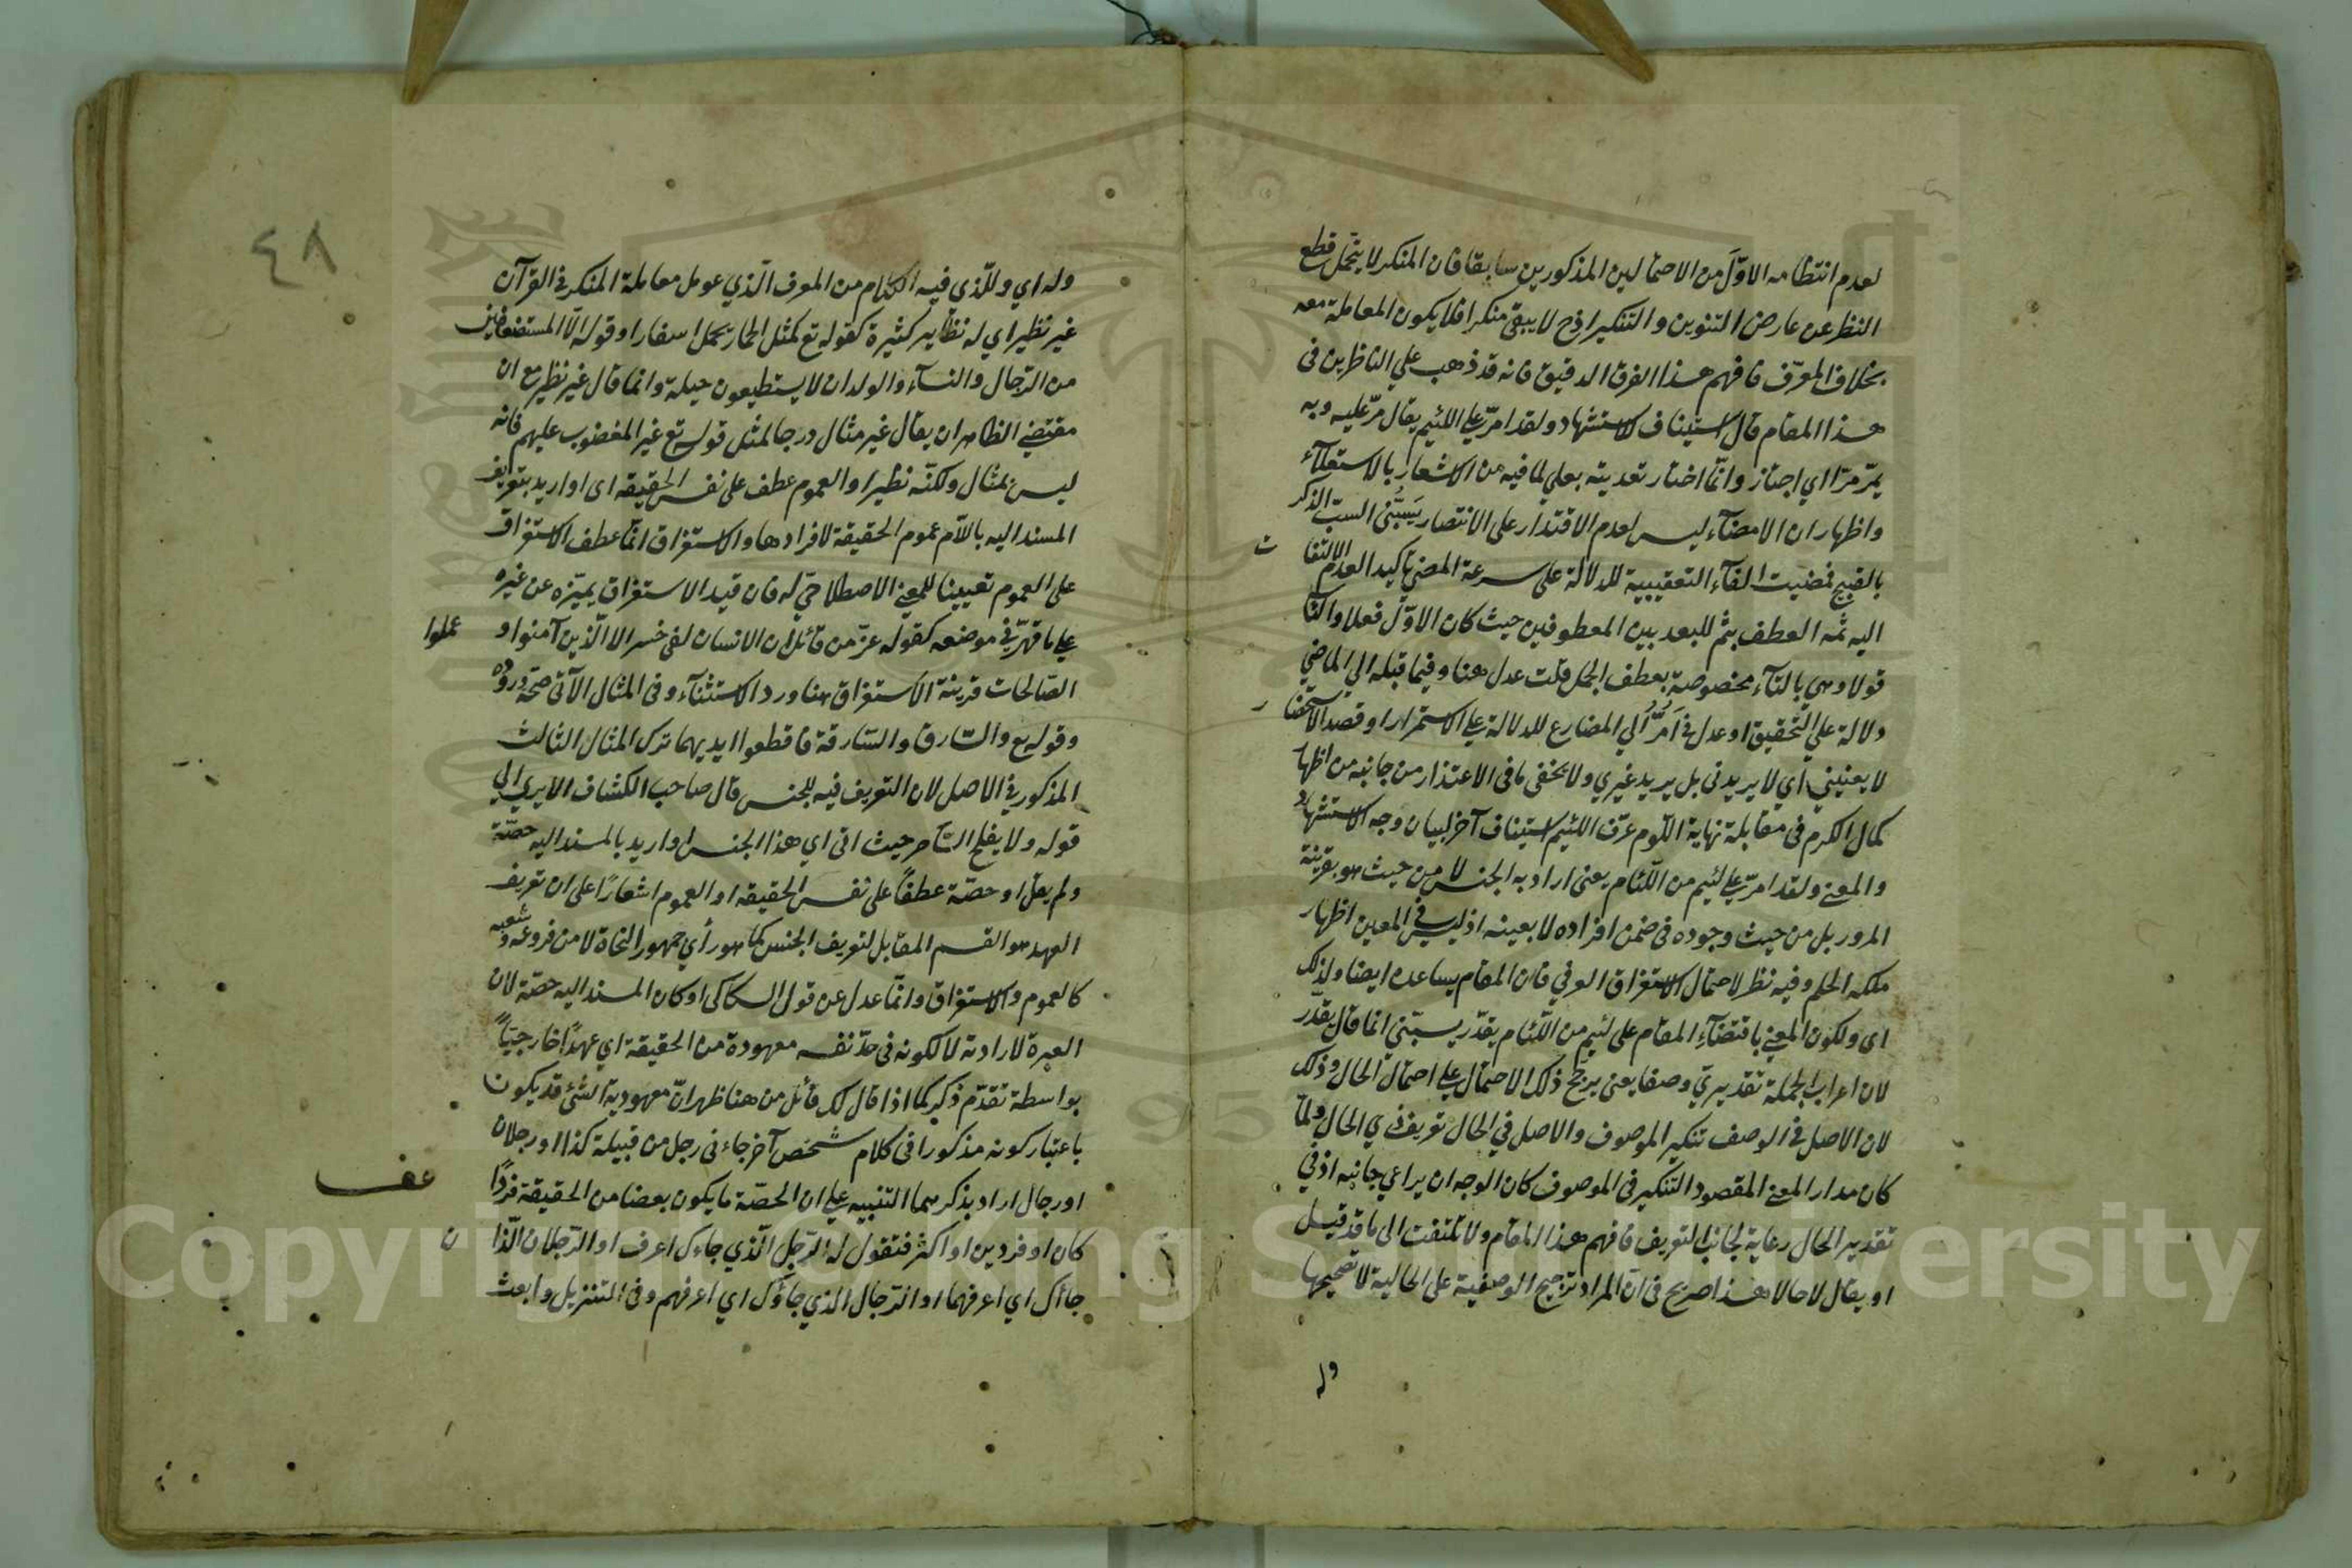 لعدم انتظامه الاوّل من الاحتمالين المذكورين سابقا فان المنكر لا يتحمل قطع
النظر عن عارض التنوين والتنكير اذ ح لا يبقى منكرا فلا يكون المعاملة معه
بخلاف المعرّف فافهم هذا الفرق الدقيق فانه قد ذهب علي الناظرين فى
هذا المقام قال استيناف للاستشهاد ولقد امرّ علي اللئيم يقال مرّ عليه وبه
يمرّ مرّا اي اجتاز وانّما اختار تعديته بعلي لما فيه من الاشعار بالاستعلآء
واظهار ان الامضآء ليس لعدم الاقتدار على الانتصار يَسُبُّنى السبّ الذكر
بالقبيح فمضيت الفآء التعقيبية للدلالة على سرعة المضي تاكيد العدم الالتفات
اليه ثمه العطف بثم للبعد بين المعطوفين حيث كان الاوّل فعلا والثا
قولا وهي بالتآء مخصوصة بعطف الجمل قلت عدل هنا وفيما قبله الي الماضي
دلالة علي التحقيق وعدل في اَمُرُّ الي المضارع للدلالة علي الاستمرار او قصد الاستحضار
لا يعنيني اي لا يريدنى بل يريد غيري ولا يخفى ما فى الاعتذار من جانبه من اظها
كمال الكرم فى مقابلة نهاية اللّوم عرّف اللئيم استيناف آخر لبيان وجه الاستشهاد
والمعنى ولقد امرّ علي لئيم من اللّئام يعنى اراد به الجنس لا من حيث هو بقرينة
المرور بل من حيث وجوده فى ضمن افراده لا بعينه اذ ليس في المعين اظهار
ملكه الحلم وفيه نظر لاحتمال الاستغراق العرفي فان المقام يساعده ايضا ولذلك
اى ولكون المعنى باقتضآءِ المقام على لئيم من اللّئام يقدّر يسبّنى انما قال يقدّر
لان اعراب الجملة تقديريّ وصفا يعنى يرجّح ذلك الاحتمال علي احتمال الحال وذلك
لان الاصل في الوصف تنكير الموصوف والاصل في الحال تعريف ذي الحال ولمّا
كان مدار المعنى المقصود التنكير فى الموصوف كان الوجه ان يراعي جانبه اذ في
تقدير الحال رعاية لجانب التعريف فافهم هذا المقام ولا تلتفت الى ما قد قيل
او يقال لا حالا هذا صريح فى انّ المراد ترجيح الوصفية على الحالية لا تصحيحها
وله
٤٨
وله اي وللّذى فيه الكلام من المعرف الّذي عومل معاملة المنكر فى القرآن
غير نظير اي له نظاير كثيرة كقوله تع كمثل الحمار يحمل اسفارا وقوله الّا المستضعفين
من الرّجال والنسآء والولدان لا يستطيعون حيلة وانما قال غير نظير مع ان
مقتضي الظاهر ان يقال غير مثال درجا لمثل قوله تع غير المغضوب عليهم فانه
ليس بمثال ولكنّه نظير او العموم عطف على نفس الحقيقه اى او اريد بتعريف
المسند اليه باللّام عموم الحقيقة لافرادها والاستغراق انّما عطف الاستغراق
على العموم تعيينا للمعنى الاصطلاحيّ له فان قيد الاستغراق يميّزه عن غيره
علي ما قرّر في موضعه كقوله عزّ من قائل ان الانسان لفى خسر الا الّذين آمنوا وعملوا
الصّالحات قرينة الاستغراق هنا ورد الاستثنآء وفى المثال الآتى صحّة وروده
وقوله تع والسّارق والسّارقة فاقطعوا ايديهما ترك المثال الثالث
المذكور في الاصل لان التعريف فيه للجنس قال صاحب الكشاف الا يري الي
قوله ولا يفلح الساحر حيث اتى اي هذا الجنس او اريد بالمسند اليه حصّة
ولم يقل او حصّة عطفاً على نفس الحقيقه او العموم اشعارًا على ان تعريف
العهد هو القسم المقابل لتعريف الجنس كما هو رأي جمهور النحاة لا من فروعه وشعبه
كالعموم والاستغراق وانّما عدل عن قول السكاكى او كان المسند اليه حصّة لان
العبرة لارادته لا لكونه فى حدّ نفسه معهودة من الحقيقة اي عهدًا خارجيّاً
بواسطة تقدّم ذكر كما اذا قال لك قائل من هنا ظهر انّ معهودية الشئ قد يكون
باعتبار كونه مذكورا فى كلام شخص آخر جاءنى رجل من قبيلة كذا او رجلان
او رجال اراد بذكرهما التنبيه علي ان الحصّة ما يكون بعضا من الحقيقة فردًا
كان او فردين او اكثر فتقول له الرّجل الّذي جاءك اعرف او الرّجلان الّذان
جاآك اي اعرفهما او الرّجال الذي جاؤك اي اعرفهم وفى التنزيل وابعث
Copyright © King Saud University